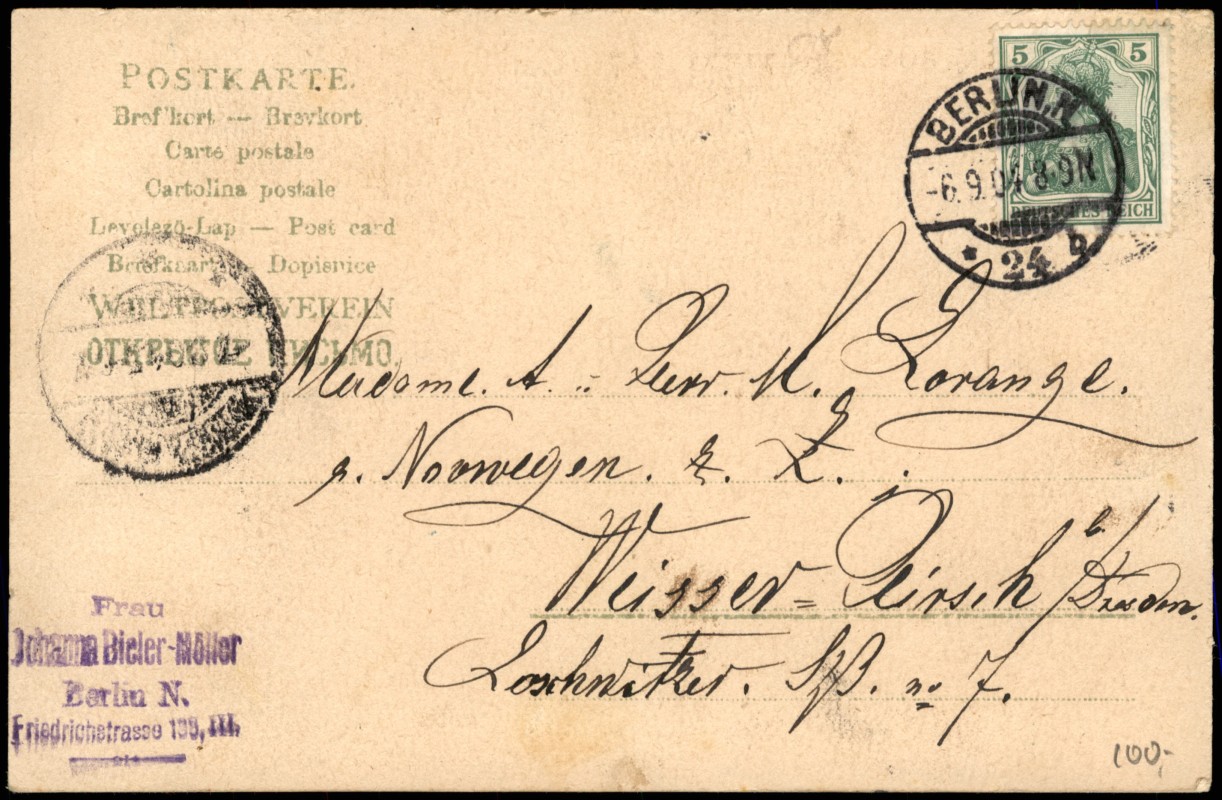 POSTKARTE.
Brefkort — Brevkort
Carte postale
Cartolina postale
Levelező-Lap — Post card
Briefkaart Dopisnice
WELTPOSTVEREIN
ОТКРЫТОЕ ПИСЬМО.
5 5
DEUTSCHES REICH
BERLIN.N.
-6.9.04.8-9N
* 24 b
Madame. A. = Herr. M. Lorange.
a. Norwegen. z. Z.
Weisser=Hirsch b/ Dresden.
Loschwitzer. Str. no 7.
Frau
Johanna Bieler-Möller
Berlin N.
Friedrichstrasse 133, III.
100,-